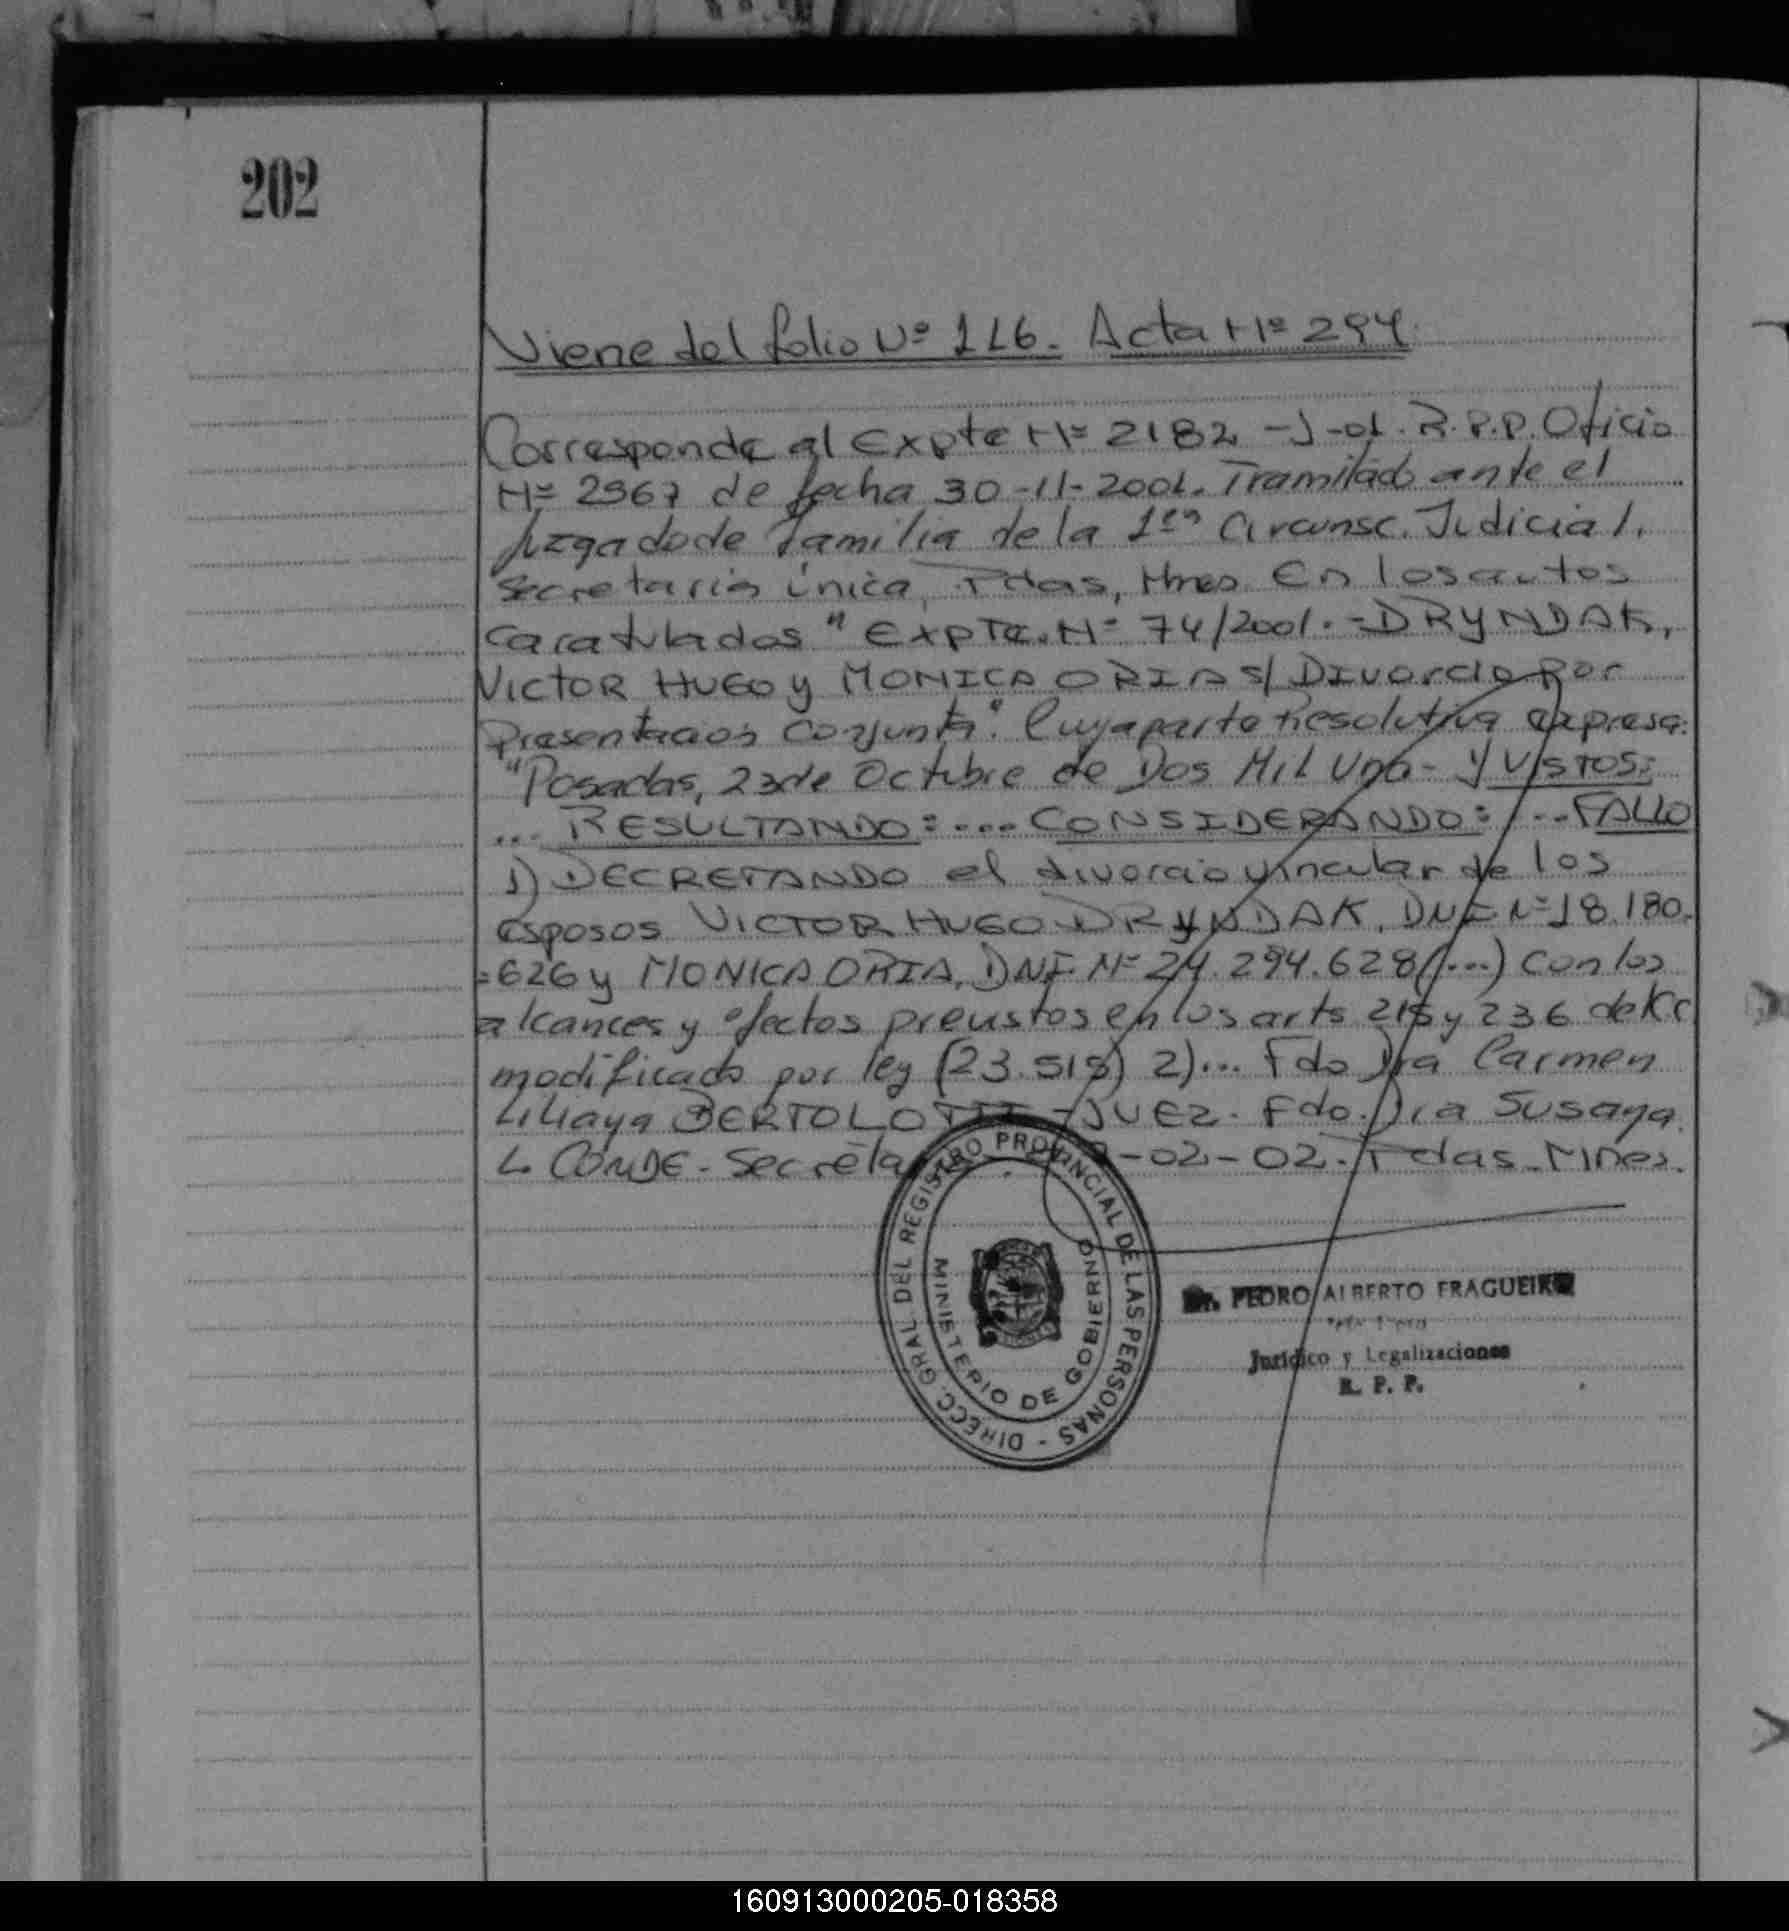 202
Viene del folio Nº 116. Acta Nº 294.
Corresponde al Expte Nº 2182 - J-01. R.P.P. Oficio
Nº 2967 de fecha 30-11-2001. Tramitado ante el
Juzgado de Familia de la 1era Circunsc. Judicial.
Secretaria Única, Pdas, Mnes. En los autos
caratulados "Expte. Nº 74/2001.- DRYNDAK,
VICTOR HUGO y MONICA ORIA S/ Divorcio Por
Presentación Conjunta". Cuya parte Resolutiva expresa:
"Posadas, 23 de Octubre de Dos Mil Uno - Y VISTOS:
... RESULTANDO: ... CONSIDERANDO: ... FALLO
1) DECRETANDO el divorcio vincular de los
esposos VICTOR HUGO DRYNDAK, DNI. Nº 18.180.
=626 y MONICA ORIA, DNI. Nº 24.294.628 (...) con los
alcances y efectos previstos en los arts 215 y 236 del C.C
modificado por ley (23.515) 2)... Fdo Dra Carmen
Liliana BERTOLOTTI - JUEZ. Fdo. Dra Susana
L. CONDE - Secreta -02-02. Pdas. Mnes.
DIRECC. GRAL. DEL REGISTRO PROVINCIAL DE LAS PERSONAS -
MINISTERIO DE GOBIERNO
Dr. PEDRO ALBERTO FRAGUEIRO
Jurídico y Legalizaciones
R. P. P.
160913000205-018358